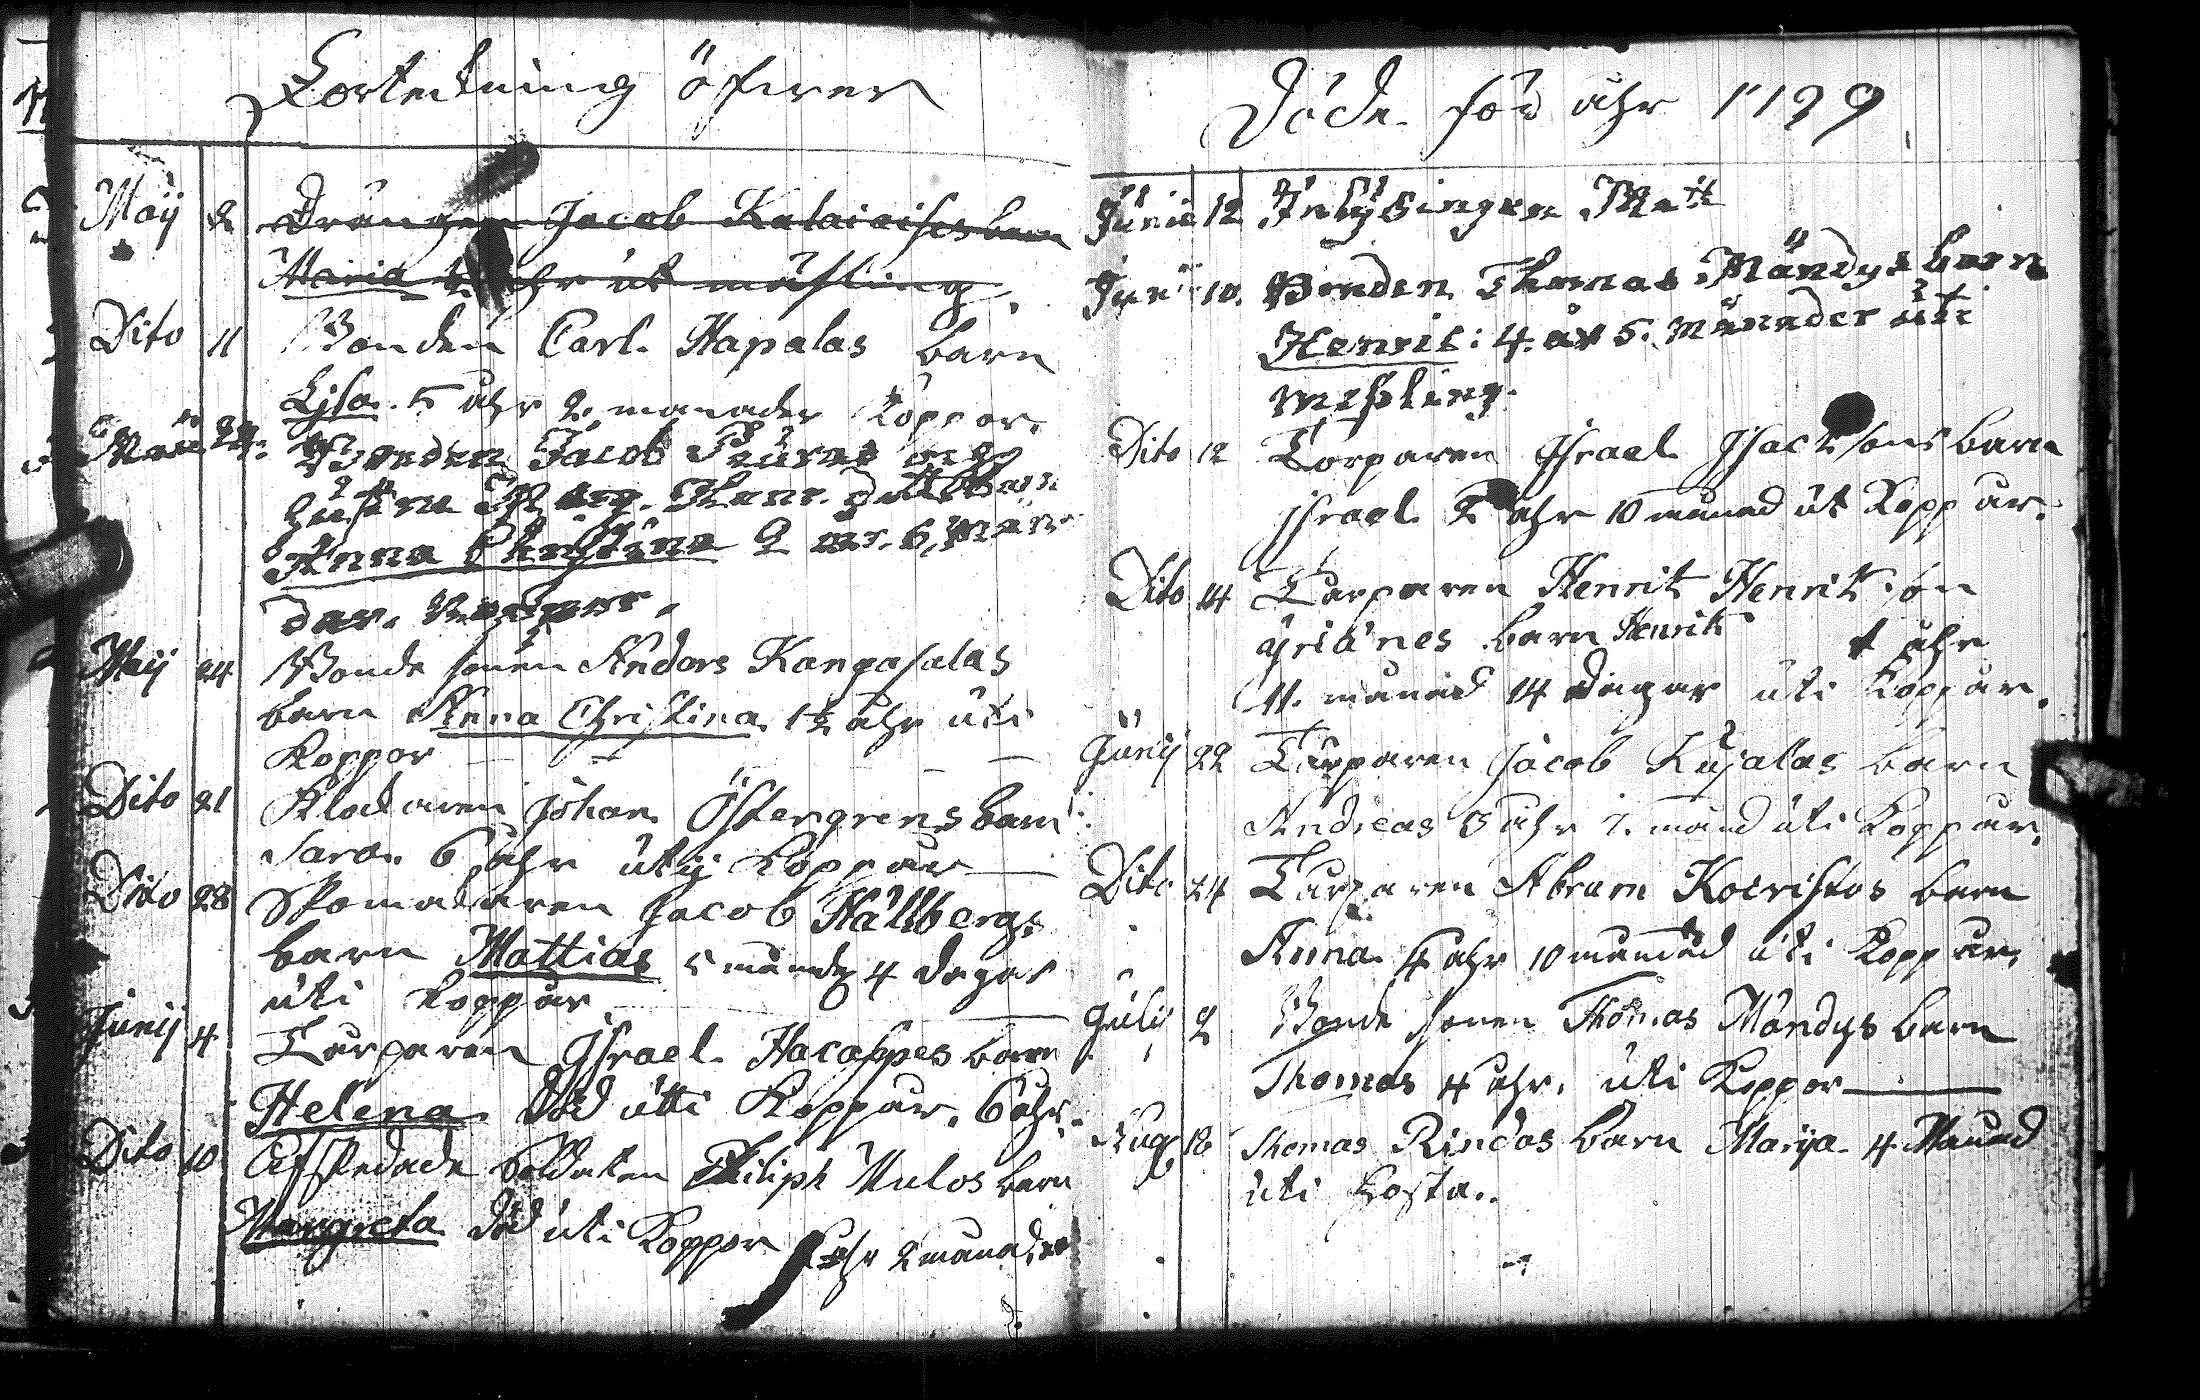 Förtekning öfwer
Maij 2 Drängen Jacob Kalaiaises barn
Maria ahr ut mäsling
Dito 11 Bonden Carl Hapalas barn
Lisa 5 ahr 2 manader Koppor
Bonden Jacob
hustru
Anna Christina 2 år 6 måna
der. Koppor.
Maij 24 Bonde sonen Anders Kangasalas
barn Anna Christina 1½ ahr uti
Koppor
Dito 21 Klockaren Johan Östergrens barn
Sara 6 ahr utij Koppor
Dito 28 Skomakaren Jacob Hällbergs
barn Mattias 5 månder 4 dagar
uti Koppur
Junij 4 Torparen Israel barn
Helena Död utti Koppur, 6 ahr
Dito 10 Afskedade Soldaten Philiph Mulos barn
Margreta död uti Koppor ahr 2 manader
Döde för ahr 1799
Junii 12 Inhysingen Matt
Junii 10. Bonden Thomas Mändys barn
Henric: 4. år 5. månader uti
Mesling.
Dito 12 Torparen Israel Isacksons barn
Israel 2 ahr 10 manad ut Koppur.
Dito 14 Torparen Henrik Henrikson
Yriänes barn Henrik 1 ahr
11. manad 14 dagar uti Koppur.
Junij 22 Torparen Jacob Kujalas barn
Andreas 3 ahr 7. manad uti Koppur,
Dito 24 Torparen Abram Koivistos barn
Anna 4 ahr 10 manad uti Koppur,
Julij 2 Bonde sonen Thomas Mändys barn
Thomas 4 ahr, uti Koppor
Aug 18 Thomas Rindas barn Marija 4 Manad
uti Hosta..